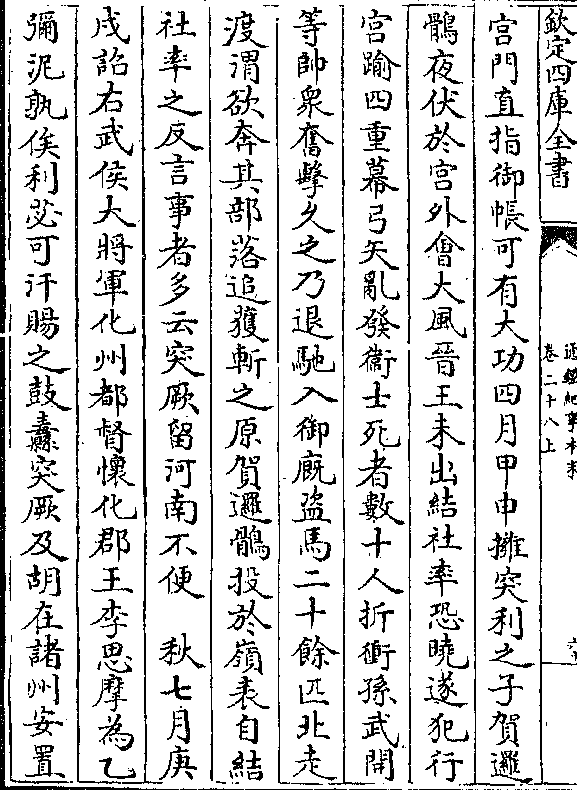 欽定四庫全書
通鑑紀事本末
卷二十八上
宮門直指御帳可有大功四月甲申擁突利之子賀邏
鶻夜伏於宮外會大風晉王未出結社率恐曉遂犯行
宮踰四重幕弓矢亂發衞士死者數十人折衝孫武開
等帥衆奮擊久之乃退馳入御廐盜馬二十餘匹北走
渡渭欲奔其部落追獲斬之原賀邏鶻投於嶺表自結
社率之反言事者多云突厥留河南不便　秋七月庚
戌詔右武侯大將軍化州都督懷化郡王李思摩為乙
彌泥孰俟利苾可汗賜之鼓纛突厥及胡在諸州安置